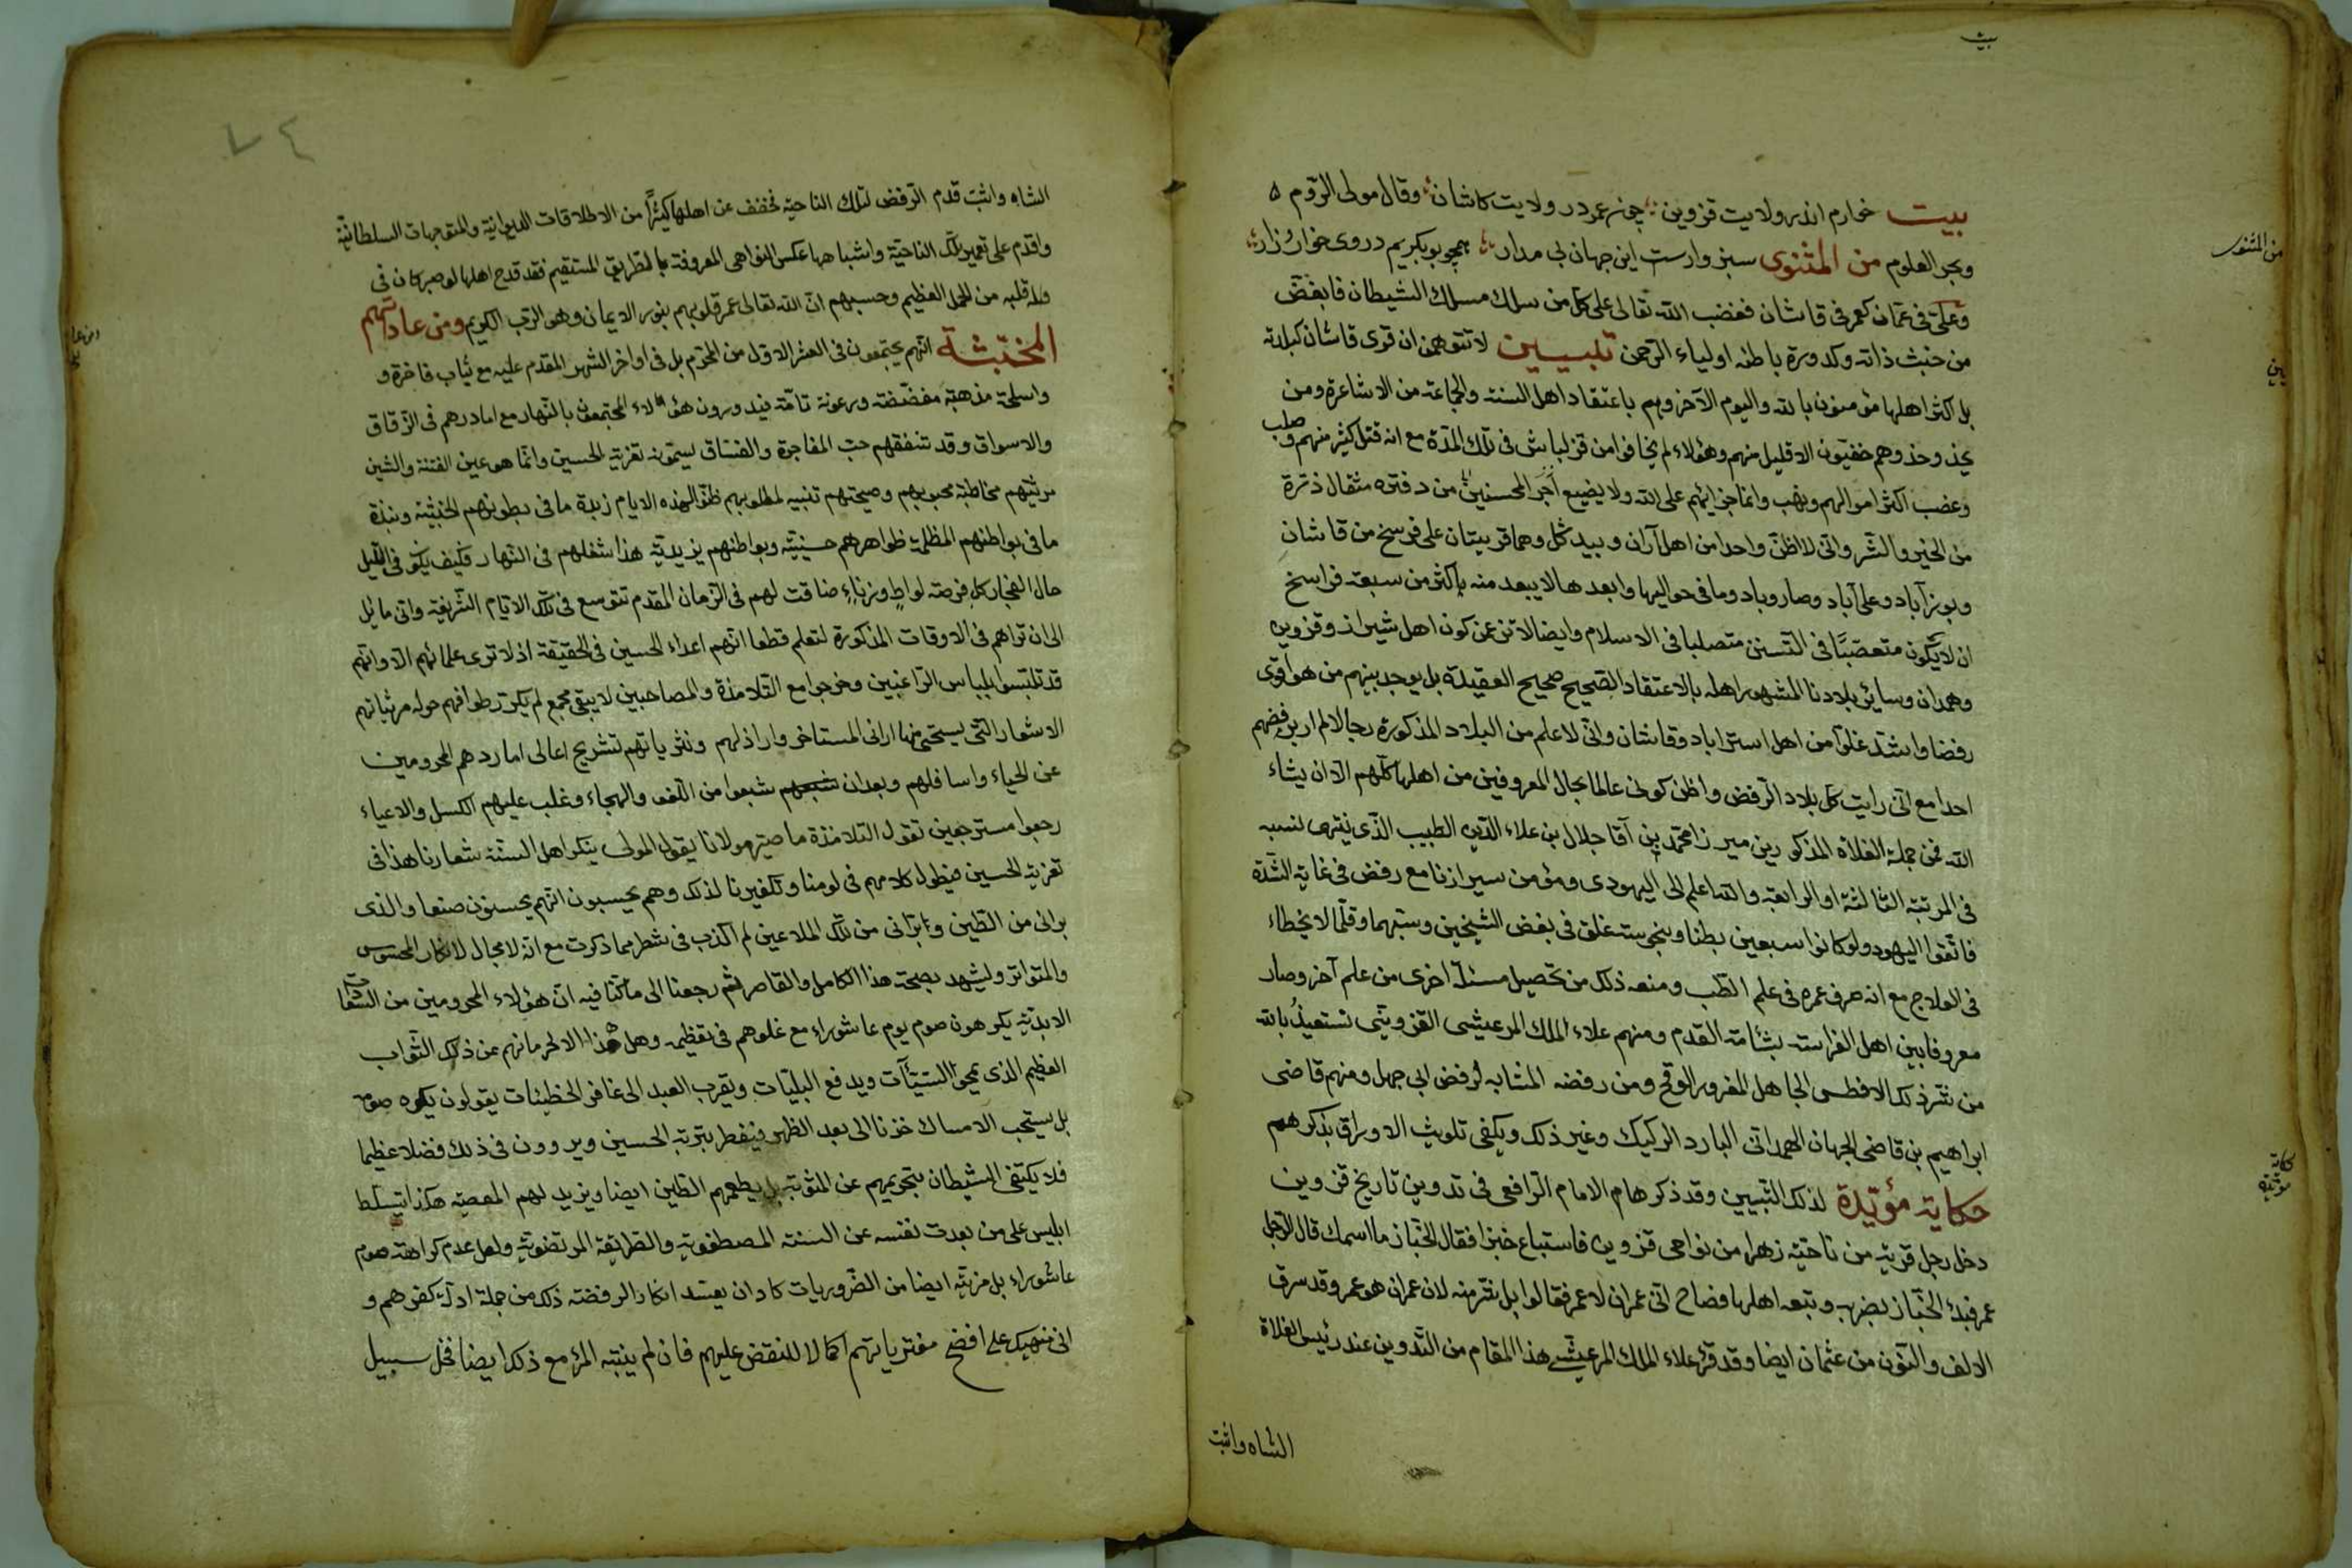 بيت
بيت خوارم اندر ولايت قزوين چون عمر در ولايت كاشان وقال مولى الروم
وبحر العلوم من المثنوى سبزوارست اين جهان بى مدار همچو بوبكريم در وى خوار وزار
من المثنوى
وعلىّ فى عمان كعمر فى قاشان فغضب الله تعالى على كل من سلك مسلك الشيطان فابغض
من خبث ذاته وكدورة باطنه اولياء الرحمن تبيين لا تتوهمن ان قرى قاشان كبلدته
بل اكثر اهلها مؤمنون بالله واليوم الآخر وهم باعتقاد اهل السنة والجماعة من الاشاعرة ومن
يحذو حذوهم حنفيون الا قليل منهم وهؤلاء لم يخافوا من قزلباش فى تلك المدة مع انه قتل كثير منهم وصلب
وغصب اكثر اموالهم ونهب وانما جزائهم على الله ولا يضيع اجر المحسنين من دفتره مثقال ذرة
من الخير والشر وانى لا اظن واحدا من اهل آران وبيدگل وهما قريتان على فرسخ من قاشان
وبوزآباد وعلى آباد وصاروباد وما فى حواليها وابعدها لا يبعد منه باكثر من سبعة فراسخ
ان لا يكون متعصبا فى التسنن متصلبا فى الاسلام وايضا لا تزعمن كون اهل شيراز وقزوين
وهمدان وسائر بلادنا المشهور اهله بالاعتقاد الصحيح صحيح العقيدة بل يوجد بينهم من هو اقوى
رفضا واشد غلوا من اهل استراباد وقاشان وانى لا علم من البلاد المذكورة رجالا لم ار برفضهم
احدا مع انى رايت كل بلاد الرفض واظن كونى عالما بحال المعروفين من اهلها كلهم الا ان يشاء
الله فمن جملة الغلاة المذكورين ميرزا محمد بن آقا جلال بن علاء الدين الطبيب الذى ينتهى نسبه
فى المرتبة الثالثة او الرابعة والله اعلم الى اليهودى ومؤمن سيرازنا مع رفض فى غاية الشدة
فاتقوا اليهود ولو كانوا سبعين بطنا وبنجوسته غلق فى بغض الشيخين وسبهما وقلما لا يخطاء
فى العلاج مع انه صرف عمره فى علم الطب ومنعه ذلك من تحصيل مسئلة اخرى من علم آخر وصار
معروفا بين اهل الفراسة بشأمة القدم ومنهم علاء الملك المرعيشى القزوينى نستعيذ بالله
من شر ذلك الافطس الجاهل المغرور الوقح ومن رفضه المشابه لرفض ابى جهل ومنهم قاضى
ابراهيم بن قاضى الجهان الهمدانى البارد الركيك وغير ذلك ويكفى تلويث الاوراق بذكرهم
حكاية مؤيدة لذلك التبيين وقد ذكرها الامام الرافعى فى تدوين تاريخ قزوين
حكاية مؤيدة
دخل رجل قرية من ناحية زهراء من نواحى قزوين فاستباع خبزا فقال الخباز ما اسمك قال الرجل
عمر فبدء الخباز بضربه وتبعه اهلها فصاح انى عمران لا عمر فقالوا بل شر منه لان عمران هو عمر وقد سرق
الالف والنون من عثمان ايضا وقد قرء علاء الملك المرعيشى هذا المقام من التدوين عند رئيس الغلاة
الشاه واثبت
٧٤
الشاه واثبت قدم الرفض لتلك الناحية فخفف عن اهلها كثيرا من الاطلاقات الديوانية والمتوجهات السلطانية
واقدم على تعمير تلك الناحية واشباهها عكس النواحى المعروفة بالطريق المستقيم فقد قدح اهلها لو صبر كان فى
وله قلبه من المحل العظيم وحسبهم ان الله تعالى عمر قلوبهم بنور الايمان وهو الرب الكريم ومن عاداتهم
المخبثة انهم يجتمعون فى العشر الاول من المحرم بل فى اواخر الشهر المقدم عليه مع ثياب فاخرة و
واسلحة مذهبة مفضضة ورعونة تامة فيدورون هؤلاء المجتمعون بالنهار مع اماردهم فى الزقاق
والاسواق وقد تنفقهم حب المفاجرة والفساق يسمونه تعزية الحسين وانما هو عين الفتنة والشين
مرثيتهم مخاطبة محبوبهم وصيحتهم تنبيه لمطلوبهم ظنوا لهذه الايام زبدة ما فى بطونهم الخبيثة ونبذة
ما فى بواطنهم المظلمة ظواهرهم حسينية وبواطنهم يزيدية هذا شغلهم فى النهار فكيف يكون فى الليل
حال الفجار كل فرصة لواط وزناء ضاقت لهم فى الزمان المقدم تتوسع فى تلك الايام الشريفة وانى مائل
الى ان تراهم فى الاوقات المذكورة لتعلم قطعا انهم اعداء الحسين فى الحقيقة اذ لا ترى علمائهم الا وانهم
قد تلبسوا بلباس الراغبين وخرجوا مع التلامذة والمصاحبين لا يبقى مجمع لم يكرر طوافهم حوله مرثياتهم
الاشعار التى يستحيى منها ادانى المستاخر واراذلهم ونثرياتهم تشريح اعالى اماردهم المحرومين
عن الحياء واسافلهم وبعد ان شبعوا من اللغو والهجاء وغلب عليهم الكسل والاعياء
رجعوا مسترجعين تقول التلامذة ما صير مولانا يقول المولى ينكر اهل السنة شعارنا هذا فى
تعزية الحسين فيطول كلامهم فى لومنا وتكفيرنا لذلك وهم يحسبون انهم يحسنون صنعا والذى
برانى من الطين وابرانى من تلك الملاعين لم اكذب فى شطر مما ذكرت مع انه لا مجال لانكار المحسوس
والمتواتر وليشهد بصحة هذا الكامل والقاصر ثم رجعنا الى ما كنا فيه ان هؤلاء المحرومين من السعادات
الابدية يكرهون صوم يوم عاشوراء مع غلوهم فى تعظيمه وهل هذا الا لحرمانهم عن ذلك الثواب
العظيم الذى يمحو السيئات ويدفع البليات ويقرب العبد الى غافر الخطيئات يقولون يكره صومه
بل يستحب الامساك حزنا الى بعد الظهر فيفطر بتربة الحسين ويروون فى ذلك فضلا عظيما
فلا يكتفى الشيطان بتحريمهم عن المثوبة بل يطعمهم الطين ايضا ويزيد لهم المعصية هكذا يتسلط
ابليس على من بعدت نفسه عن السنة المصطفوية والطريقة المرتضوية ولعل عدم كراهة صوم
عاشوراء بل مزيته ايضا من الضروريات كاد ان يعتد انكار الرفضة ذلك من جملة ادلة كفرهم و
انى ننهيك على افضح مفترياتهم اكمالا للنقض عليهم فان لم ينتبه المرء مع ذلك ايضا فخل سبيل